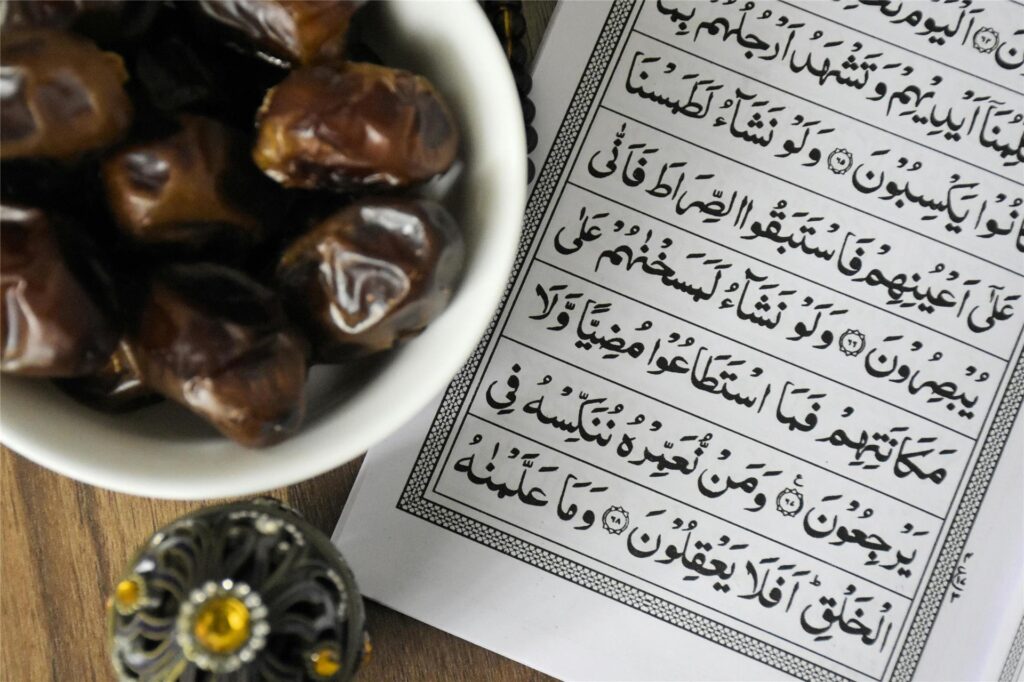 اَلْيَوْمَ
اَيْدِيْهِمْ وَتَشْهَدُ اَرْجُلُهُمْ بِمَا
كَانُوْا يَكْسِبُوْنَ ﴿٦٥﴾ وَلَوْ نَشَآءُ لَطَمَسْنَا
عَلٰٓى اَعْيُنِهِمْ فَاسْتَبَقُوا الصِّرَاطَ فَاَنّٰى
يُبْصِرُوْنَ ﴿٦٦﴾ وَلَوْ نَشَآءُ لَمَسَخْنٰهُمْ عَلٰى
مَكَانَتِهِمْ فَمَا اسْتَطَاعُوْا مُضِيًّا وَّلَا
يَرْجِعُوْنَ ﴿٦٧﴾ وَمَنْ نُّعَمِّرْهُ نُنَكِّسْهُ فِى
الْخَلْقِؕ اَفَلَا يَعْقِلُوْنَ ﴿٦٨﴾ وَمَا عَلَّمْنٰهُ